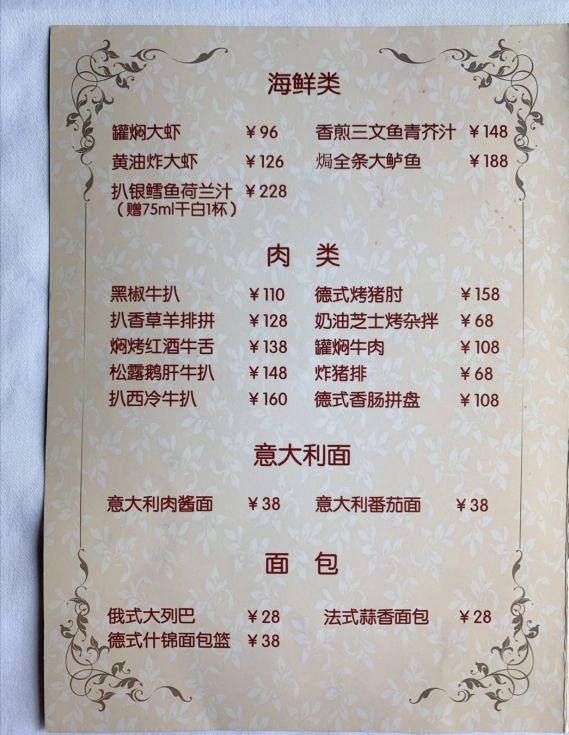 海鲜类
罐焖大虾 ￥96 香煎三文鱼青芥汁 ￥148
黄油炸大虾 ￥126 焗全条大鲈鱼 ￥188
扒银鳕鱼荷兰汁 ￥228
（赠75ml干白1杯）
肉 类
黑椒牛扒 ￥110 德式烤猪肘 ￥158
扒香草羊排拼 ￥128 奶油芝士烤杂拌 ￥68
焖烤红酒牛舌 ￥138 罐焖牛肉 ￥108
松露鹅肝牛扒 ￥148 炸猪排 ￥68
扒西冷牛扒 ￥160 德式香肠拼盘 ￥108
意大利面
意大利肉酱面 ￥38 意大利番茄面 ￥38
面 包
俄式大列巴 ￥28 法式蒜香面包 ￥28
德式什锦面包篮 ￥38